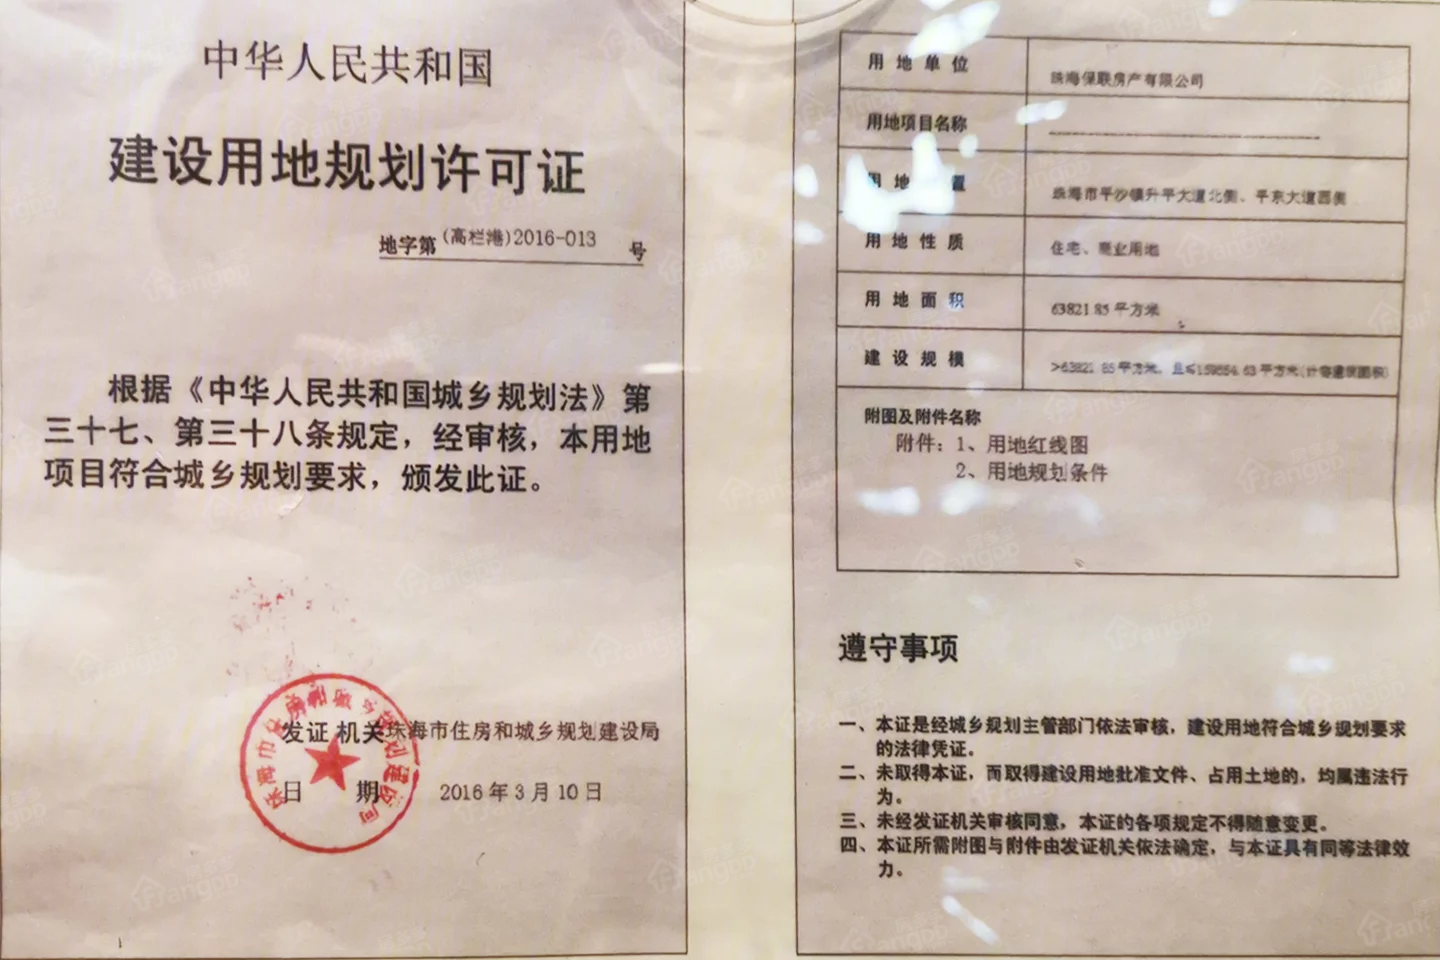 中华人民共和国
建设用地规划许可证
地字第(高栏港)2016-013 号
根据《中华人民共和国城乡规划法》第
三十七、第三十八条规定，经审核，本用地
项目符合城乡规划要求，颁发此证。
发证机关珠海市住房和城乡规划建设局
日 期 2016年3月10日
用地单位 珠海保联房产有限公司
用地项目名称
地 置 珠海市平沙镇升平大道北侧、平东大道西侧
用地性质 住宅、商业用地
用地面积 63821.85平方米
建设规模 >63821.85平方米，且≤159554.63平方米(计容建筑面积)
附图及附件名称
附件：1、用地红线图
2、用地规划条件
遵守事项
一、本证是经城乡规划主管部门依法审核，建设用地符合城乡规划要求
的法律凭证。
二、未取得本证，而取得建设用地批准文件、占用土地的，均属违法行
为。
三、未经发证机关审核同意，本证的各项规定不得随意变更。
四、本证所需附图与附件由发证机关依法确定，与本证具有同等法律效
力。